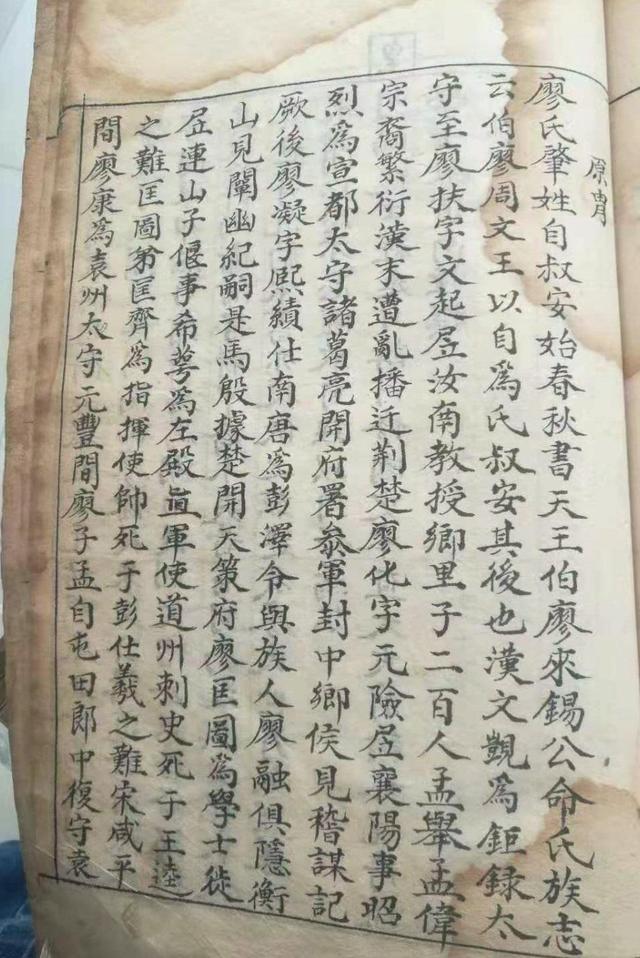 原胄
廖氏肇姓自叔安始春秋書天王伯廖來錫公命氏族志
云伯廖周文王以自為氏叔安其後也漢文觀為鉅録太
守至廖扶字文起居汝南教授鄉里子二百人孟舉孟偉
宗裔繁衍漢末遭亂播迁荆楚廖化字元險居襄陽事昭
烈為宣都太守諸葛亮開府署叅軍封中鄉侯見稽謀記
厥後廖凝字熙績仕南唐為彭澤令與族人廖融俱隱衡
山見闡幽紀嗣是馬殷據楚開天策府廖匡圖為學士徙
居連山子偃事希萼為左殿直軍使道州刺史死于王逵
之難匡圖弟匡齊為指揮使帥死于彭仕羲之難宋咸平
間廖康為袁州太守元豐間廖子孟自屯田郎中復守袁